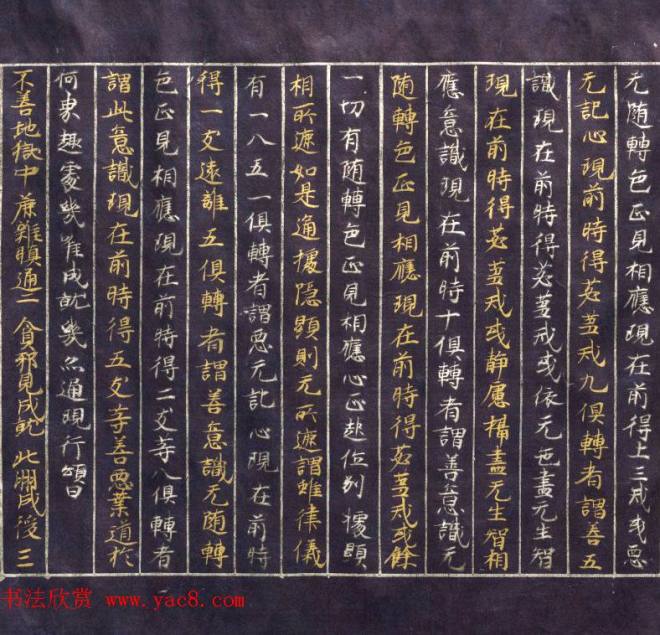 无随轉色正見相應現在前得上三戒或惡
无記心現前時得苾蒭戒九俱轉者謂善五
識現在前時得苾蒭戒或依无色盡无生智
現在前時得苾蒭戒或静慮攝盡无生智相
應意識現在前時十俱轉者謂善意識无
随轉色正見相應現在前時得苾蒭戒或餘
一切有随轉色正見相應心正起位别據顯
相所遮如是通據隱顯則无所遮謂離律儀
有一八五一俱轉者謂惡无記心現在前時
得一支遠離五俱轉者謂善意識无随轉
色正見相應現在前時得二支等八俱轉者
謂此意識現在前時得五支等善惡業道於
何界趣處幾唯成就幾亦通現行頌曰
不善地獄中麁雜瞋通二 貪邪見成就 此洲成後三
书法欣赏 www.yac8.com